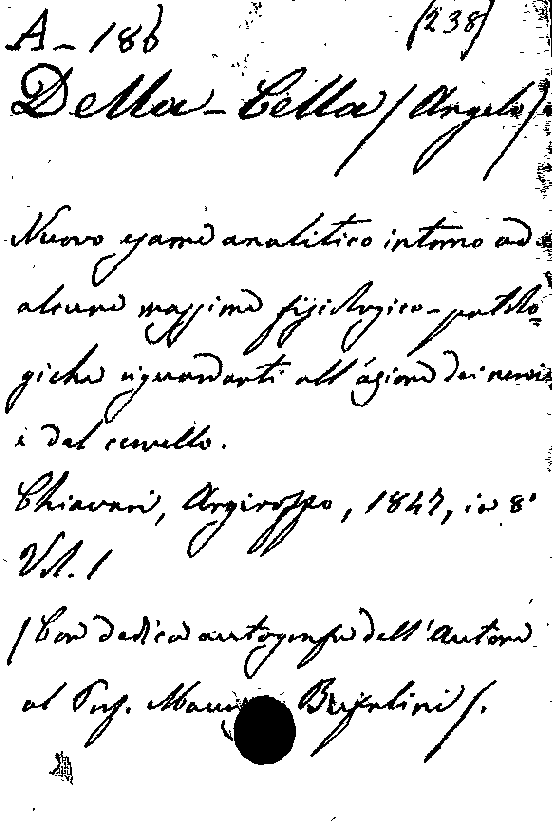 A - 186 (238)
Della-Cella (Angelo)
Nuovo esame analitico intorno ad
alcune massime fisiologico-patolo=
giche riguardanti all'azione dei nervi
e del cervello.
Chiavari, Argiroffo, 1847, in 8°
Vol. 1
(Con dedica autografa dell'Autore
al Prof. Bufalini).